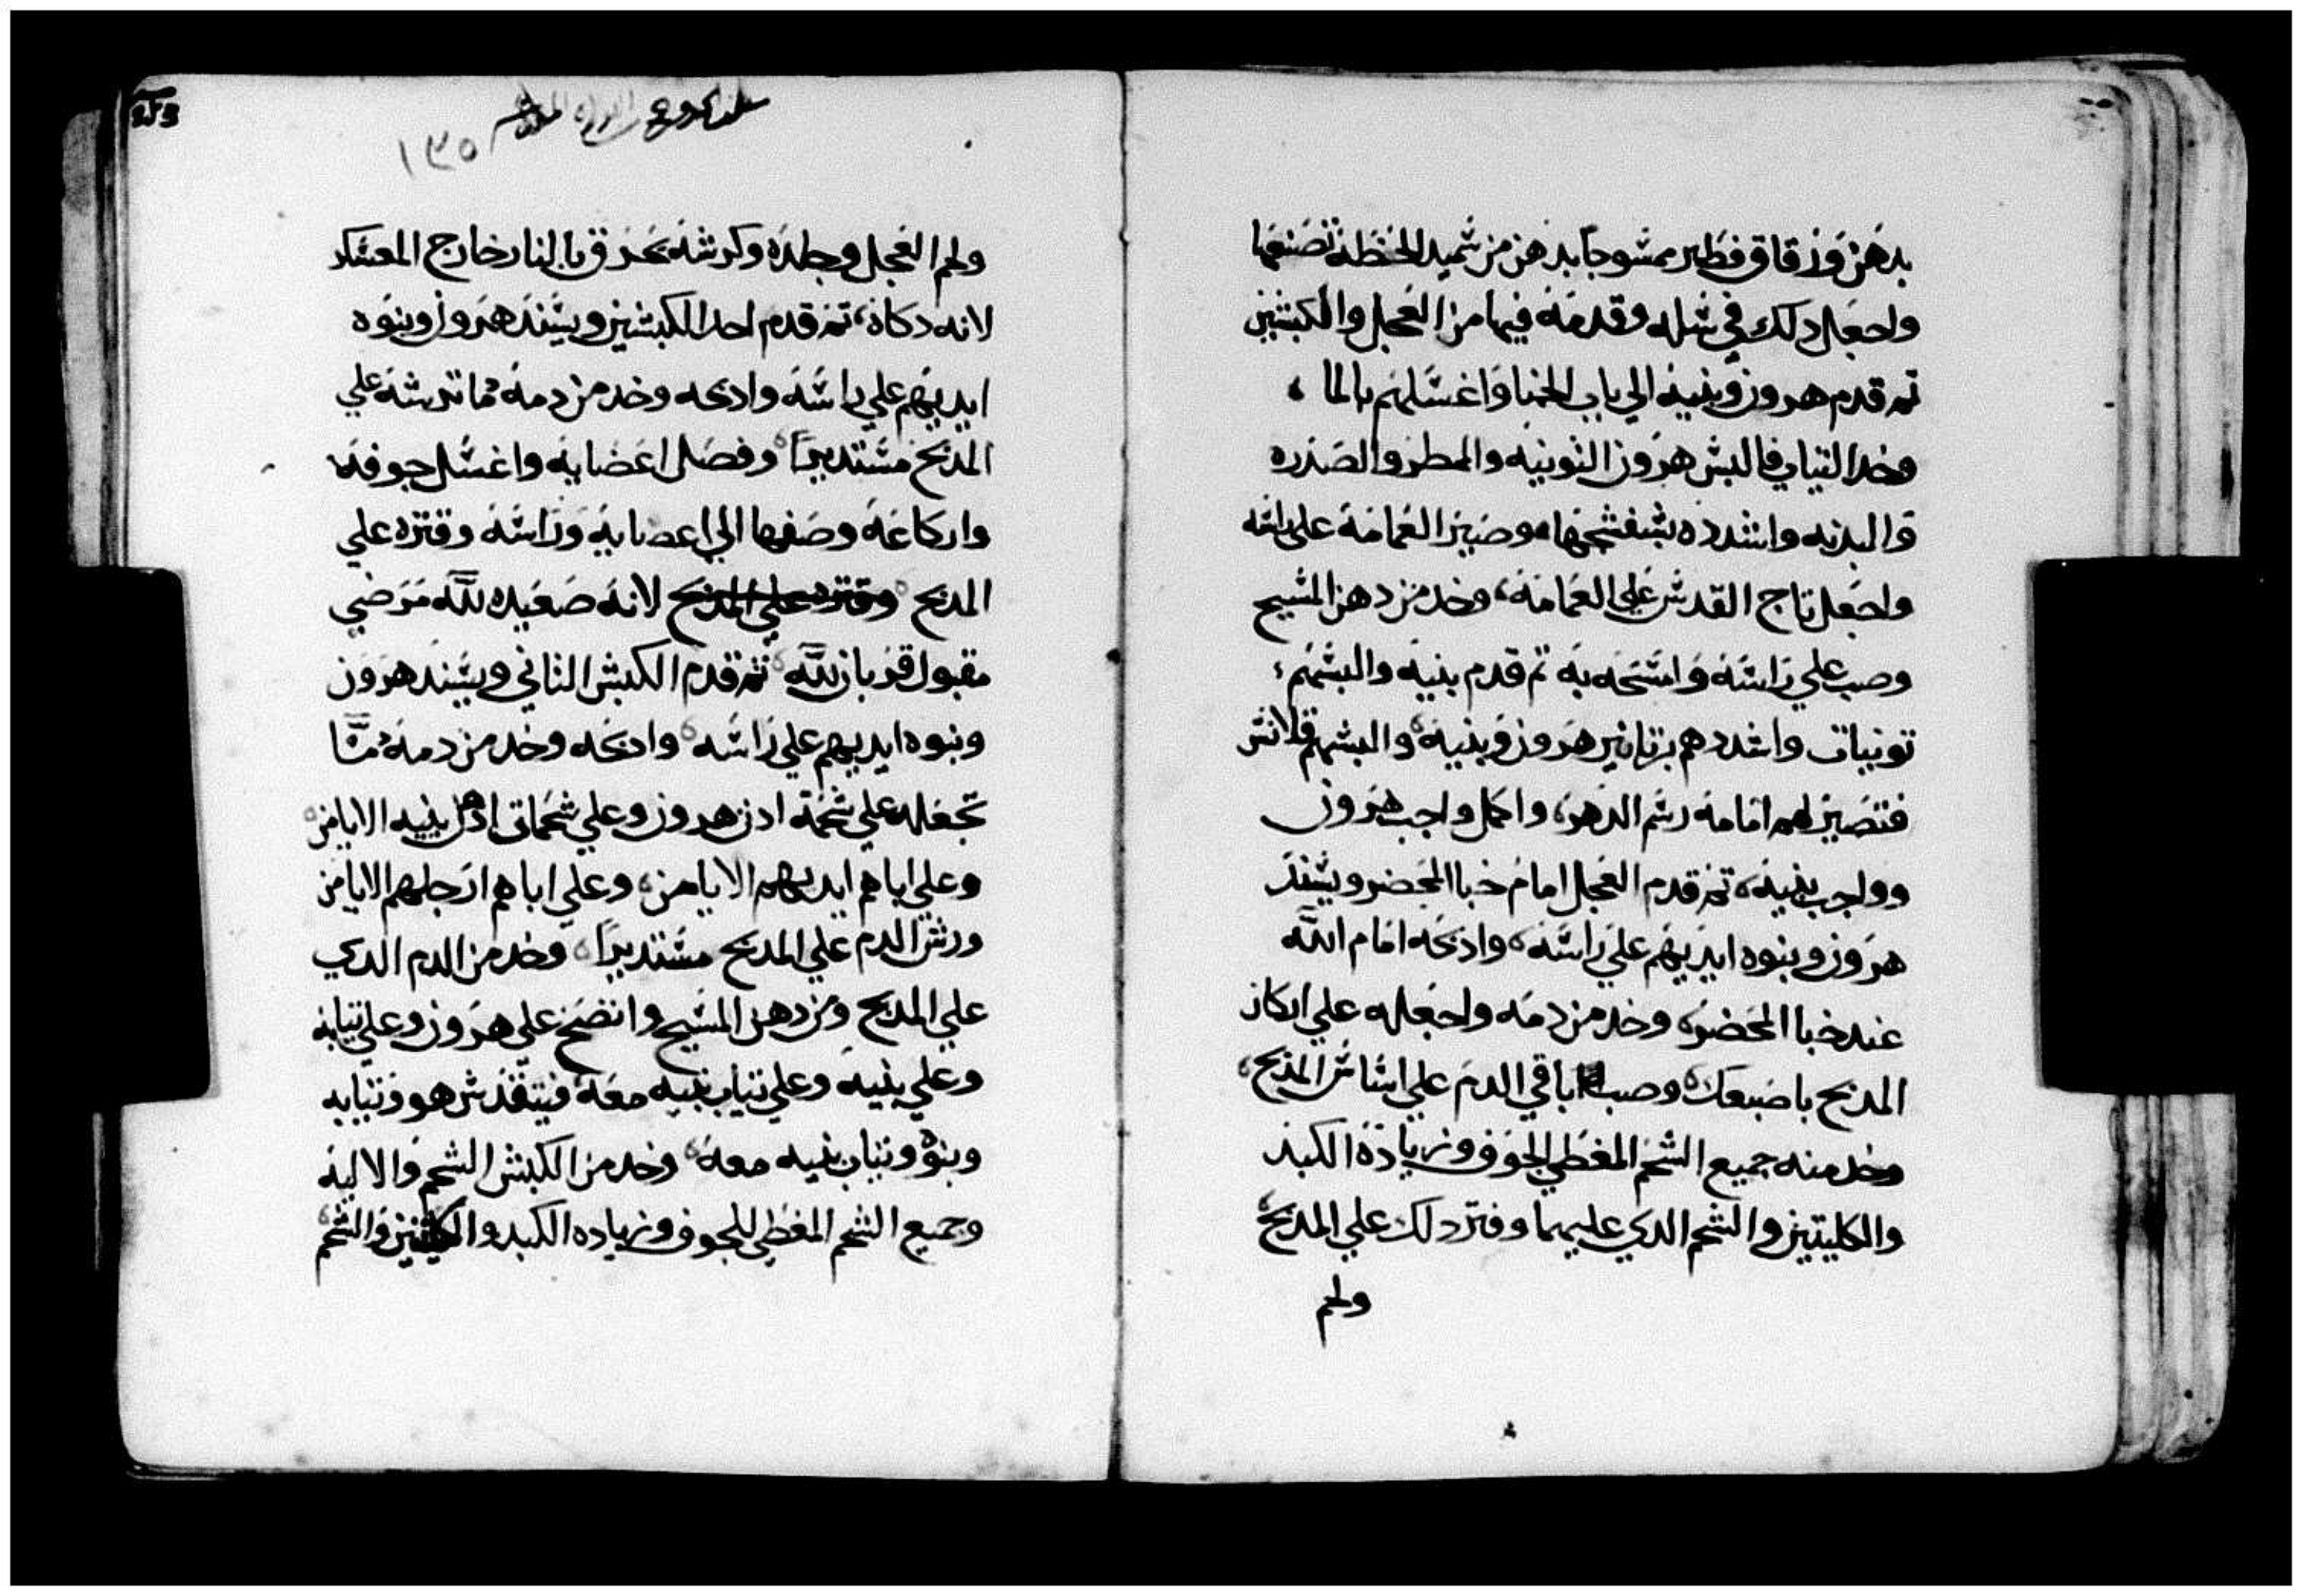 بدهن وزقاق فطير ممسوحا بدهن من سميد الحنطة تصنعها
واجعل دلك في سله وقدمه فيها من العجل والكبشين
تم قدم هرون وبنيه الي باب الخبا واغسلهم بالما ،
وخد التياب فالبس هرون التونيه والممطر والصدره
والبدنه واشدده بشفشجها وصير العمامة على راسه
واجعل تاج القدس على العمامة، وخد من دهن المسيح
وصب علي راسه وامسحه به تم قدم بنيه والبسهم،
تونيات واشددهم بزنانير هرون وبنيه، والبسهم قلانس
فتصير لهم امامة رسم الدهر، واكمل واجب هرون
وواجب بنيه، تم قدم العجل امام خبا المحضر ويسند
هرون وبنوه ايديهم علي راسه، وادبحه امام الله
عند خبا المحضر، وخد من دمه واجعله علي اركان
المدبح باصبعك، وصب باقي الدم علي اساس المدبح،
وخد منه جميع الشحم المغطي الجوف وزيادة الكبد
والكليتين والشحم الدي عليهما وقتر دلك علي المدبح،
ولحم
١٣٥
ولحم العجل وجلده وكرشه تحرق بالنار خارج المعسكر
لانه دكاة، تم قدم احد الكبشين ويسند هرون وبنوه
ايديهم علي راسه وادبحه وخد من دمه ما ترشه علي
المدبح مستديرا، وفصل اعضايه واغسل جوفه
واركاعه وصفها الي اعضايه وراسه وقتره علي
المدبح وقتره علي المدبح لانه صعيده لله مرضي
مقبول قربان لله، تم قدم الكبش التاني ويسند هرون
وبنوه ايديهم علي راسه، وادبحه وخد من دمه ما
تجعله علي شحمة ادن هرون وعلي شحمات ادن بنيه الايامن،
وعلي اباهم ايديهم الايامن، وعلي اباهم ارجلهم الايامن
ورش الدم علي المدبح مستديرا، وخد من الدم الدي
علي المدبح ومن دهن المسيح وانضح علي هرون وعلي تيابه
وعلي بنيه وعلي تياب بنيه معه، فيتقدس هو وتيابه
وبنوه وتياب بنيه معه، وخد من الكبش الشحم والاليه
وجميع الشحم المغطي للجوف وزياده الكبد والكليتين والشحم،